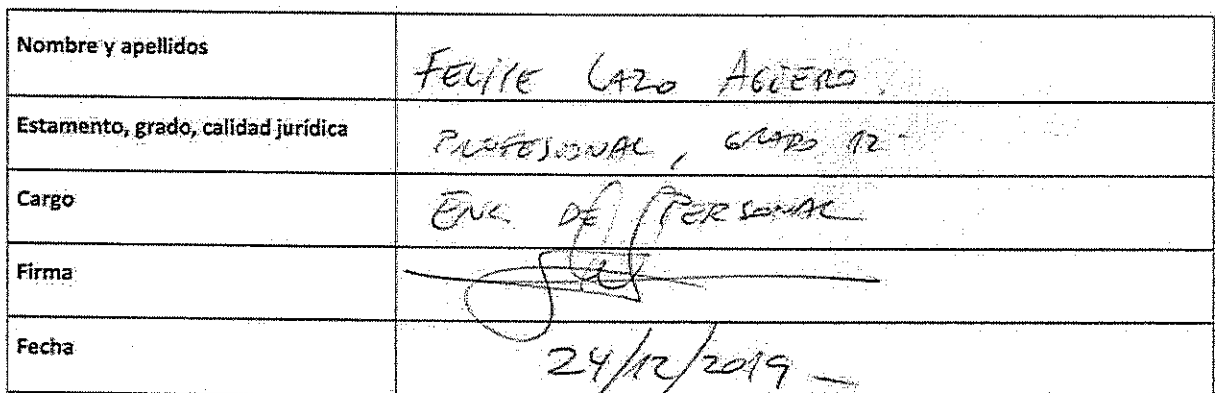 Nombre y apellidos
FELIPE LAZO AGÜERO
Estamento, grado, calidad jurídica
PROFESIONAL, GRADO 12
Cargo
ENC. DE PERSONAL
Firma
Fecha
24/12/2019